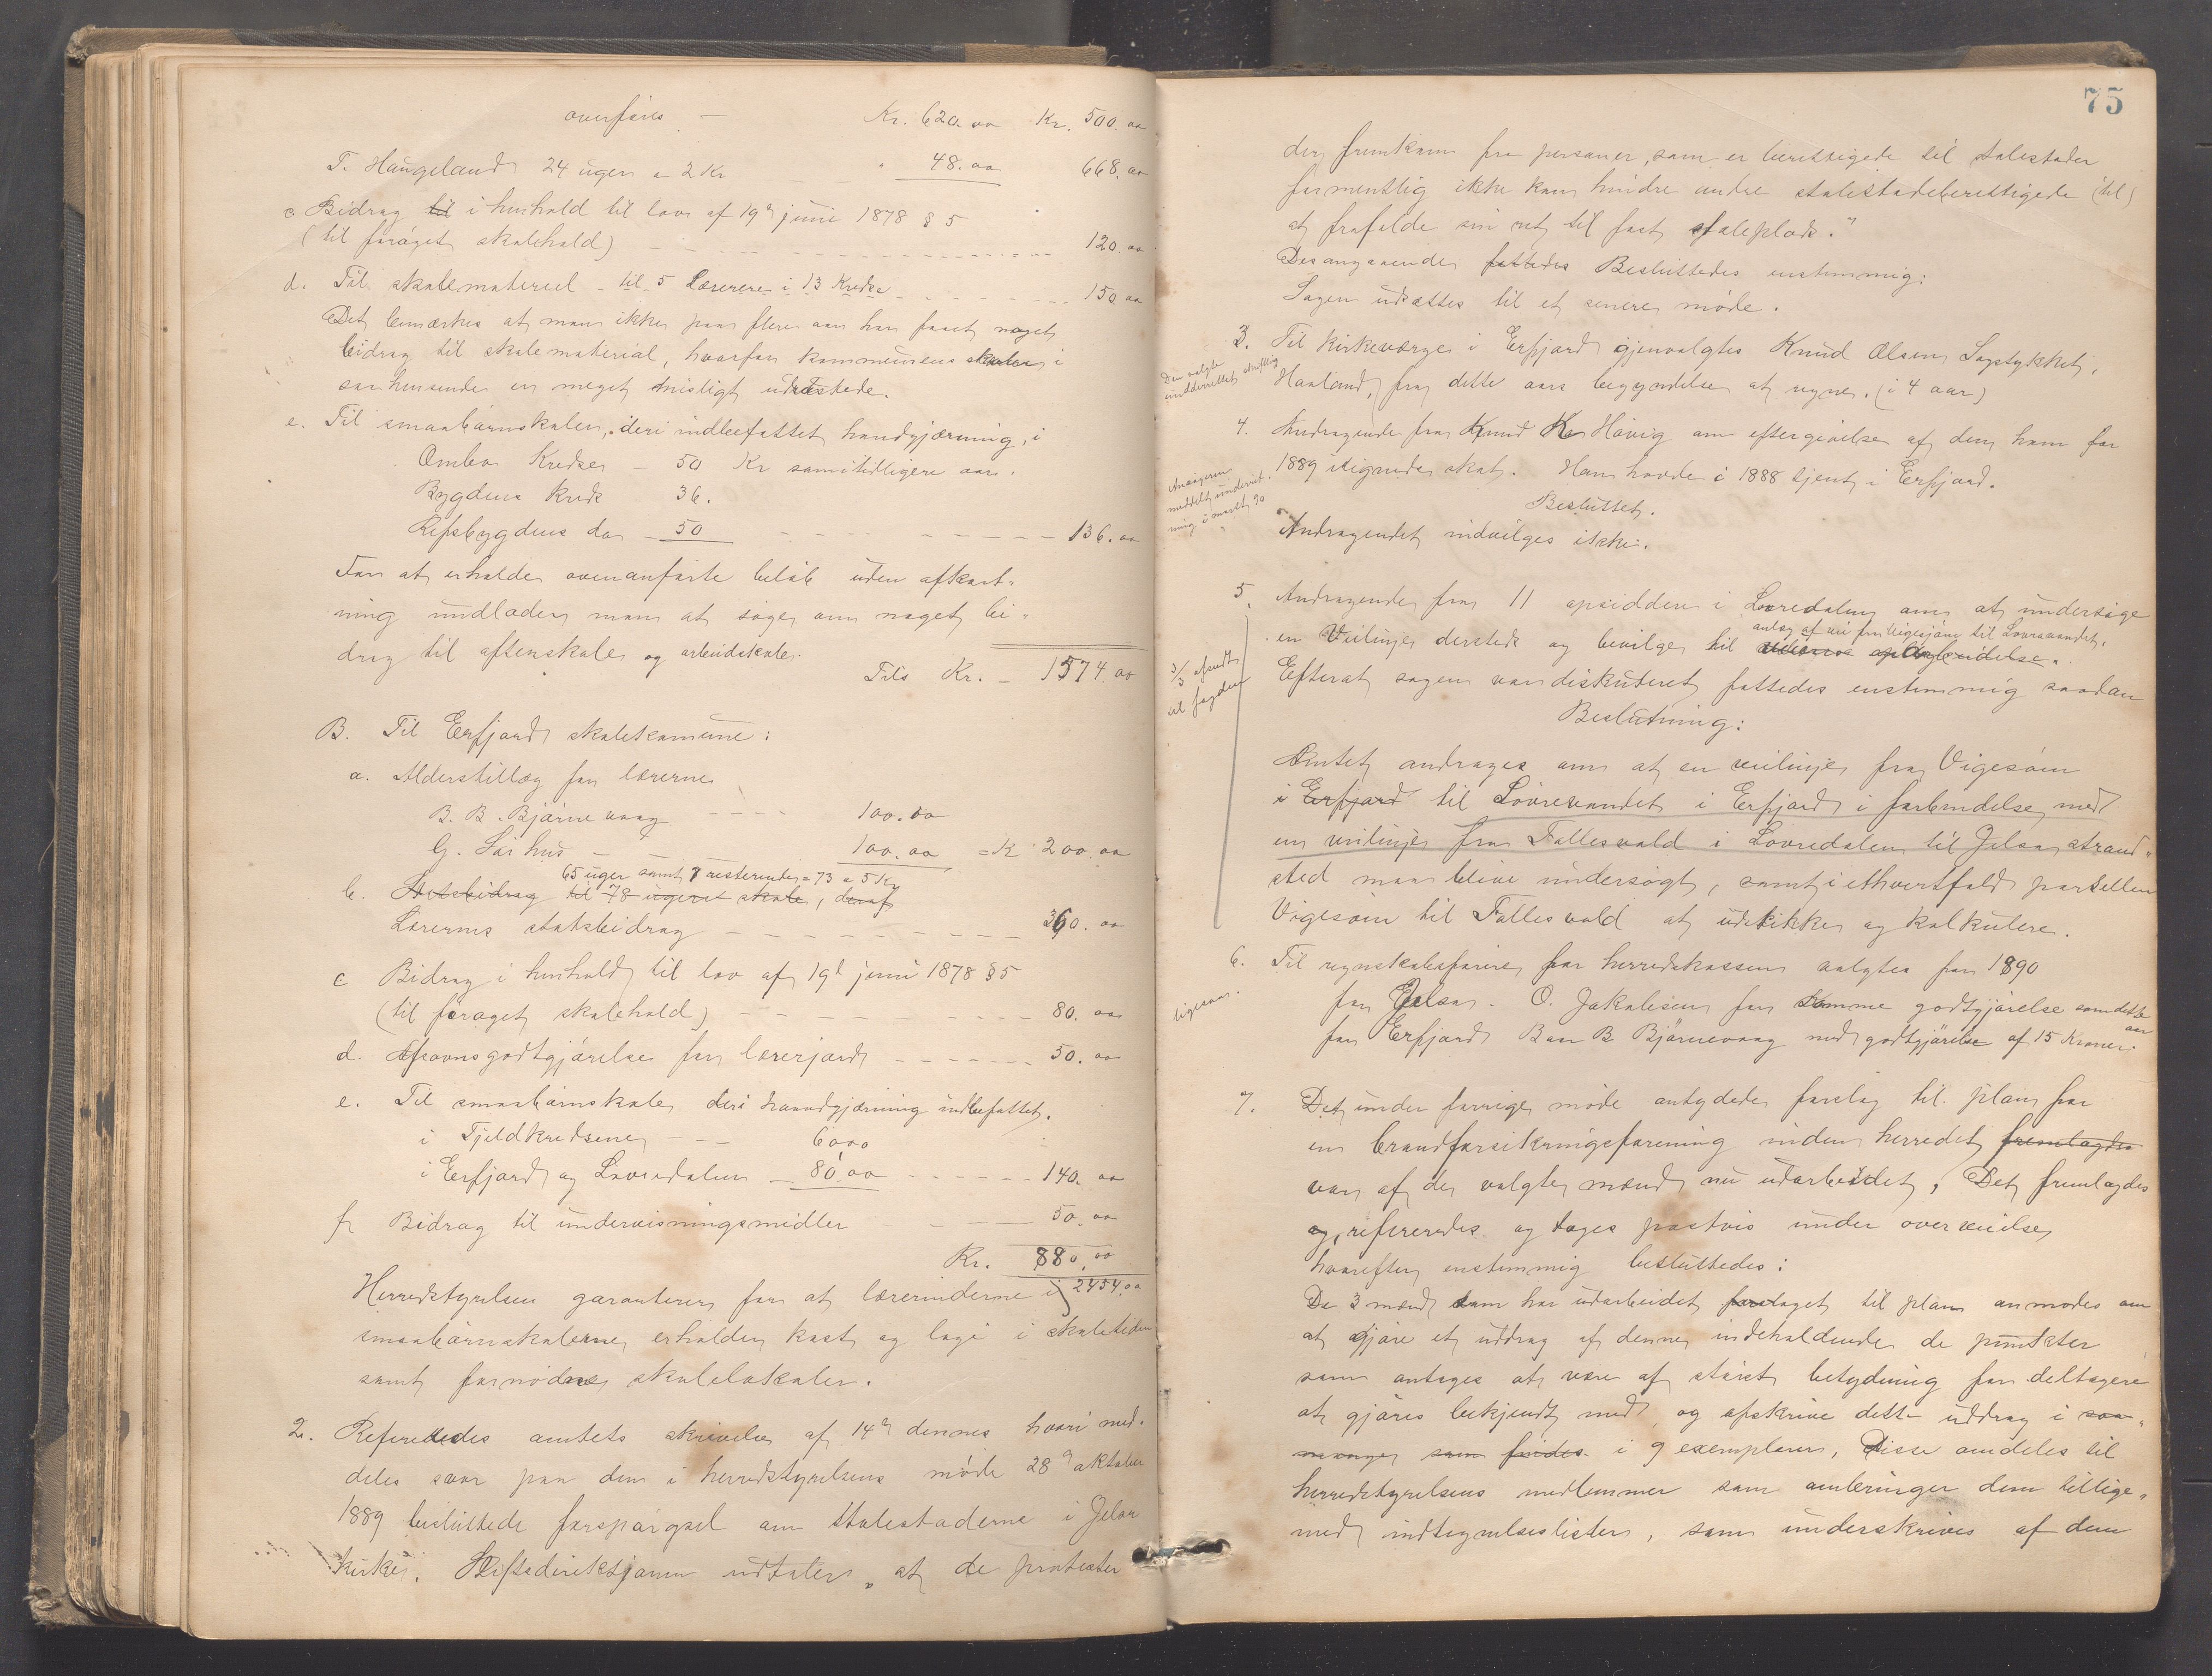 overføres – Kr. 620.00 Kr. 500.00
T. Haugeland 24 uger a 2 Kr " 48.00 668.00
c Bidrag til i henhold til lov af 19de juni 1878 § 5
(til forøget skolehold) 120.00
d. Til skolemateriel – til 5 Lærere i 13 Kredse 150.00
Det bemærkes at man ikke paa flere aar har faaet noget
bidrag til skolematerial, hvorfor kommunens skoler i
saa henseende er meget misligt udrustede.
e. Til smaabarnskolen, deri indbefattet handgjærning, i
Ombo Kredse – 50 Kr som tidligere aar.
Bygdens Kreds 36.
Refsbygdens do – 50 136.00
For at erholde ovenanførte beløb uden afkort-
ning undlader man at søge om noget bi-
drag til aftenskole og arbeidsskole.
Tils Kr. – 1574.00
B. Til Erfjord skolekomune:
a. Alderstillæg for lærerne
B. B. Bjørnevaag 100.00
G. Sørhus – 100.00 = K 200.00
65 uger samt 8 resterende = 73 a 5 Kr
b. Statsbidrag til 78 ugers skole, deraf
Lærernes statsbidrag 360.00
c Bidrag i henhold til lov af 19de juni 1878 § 5
(til forøget skolehold) 80.00
d. Afsavnsgodtgjørelse for lærerjord 50.00
e. Til smaabarnskole deri haandgjærning indbefattet.
i Tjeldkredsene 60.00
i Erfjord og Lovredalen – 80.00 140.00
f Bidrag til undervisningsmidler 50.00
Kr. 880.00
Herredstyrelsen garanterer for at lærerinderne i 2454.00
smaabarnskolerne erholder kost og logi i skoletiden
samt fornødne skolelokaler.
2. Refereredes amtets skrivelse af 14de dennes hvori med-
deles svar paa den i herredstyrelsens møde 28de oktober
1889 besluttede forespørgsel om stolestaderne i Jelsa
kirke. Stiftsdirektionen udtaler "at de protester
75
der fremkom fra personer, som er berettigede til stolestader
formentlig ikke kan hindre andre stolestadeberettigede (til)
at frafalde sin ret til fast stoleplads."
Desangaaende fattedes Besluttedes enstemmig:
Sagen udsættes til et senere møde.
3. Til kirkeværge i Erfjord gjenvalgtes Knud Olsen Sagstykket,
Den valgte
underrettet skriftlig
Haaland, fra dette aars begyndelse at regne. (i 4 aar)
4. Andragende fra Knud K. Høvig om eftergivelse af den ham for
1889 ilignede skat. Han havde i 1888 tjent i Erfjord.
Ansøgeren
meddelt underret-
ning i marts 90
Besluttet.
Andragendet indvilges ikke.
5. Andragende fra 11 opsiddere i Lovredalen om at undersøge
anlæg af vei fra Vigesjøen til Lovravandet.
en Veilinje dersteds og bevilge til oparbeidelse.
3/3 afsendt
til fogden
Efterat sagen var diskuteret fattedes enstemmig saadan
Beslutning:
Amtet andrages om at en veilinje fra Vigesøen
i Erfjord til Lovrevandet i Erfjord i forbindelse med
en veilinje fra Tollesvold i Lovredalen til Jelsa strand-
sted maa blive undersøgt, samt i ethvertfald parsellen
Vigesøen til Tollesvold at udstikke og kalkulere.
6. Til regnskabsførere for herredskassen valgtes for 1890
ligesaa.
for Jelsa. O. Jakobsen for samme godtgjørelse som dette
aar
for Erfjord Baar B Bjørnevaag med godtgjørelse af 15 Kroner.
7. Det under forrige møde antydede forslag til plan for
en brandforsikringsforening inden herredet fremlagdes
var af de valgte mænd nu udarbeidet, Det fremlagdes
og, refereredes og toges postvis under overveielse
hvorefter enstemmig besluttedes:
De 3 mænd som har udarbeidet forslaget til plan anmodes om
at gjøre et uddrag af denne indeholdende de punkter
som antages at være af størst betydning for deltagere
at gjøres bekjendt med, og afskrive dette uddrag i saa
mange som findes i 9 exemplarer, Disse omdeles til
herredstyrelsens medlemmer som ombringer dem tillige-
med indtegnelseslister, som underskrives af dem